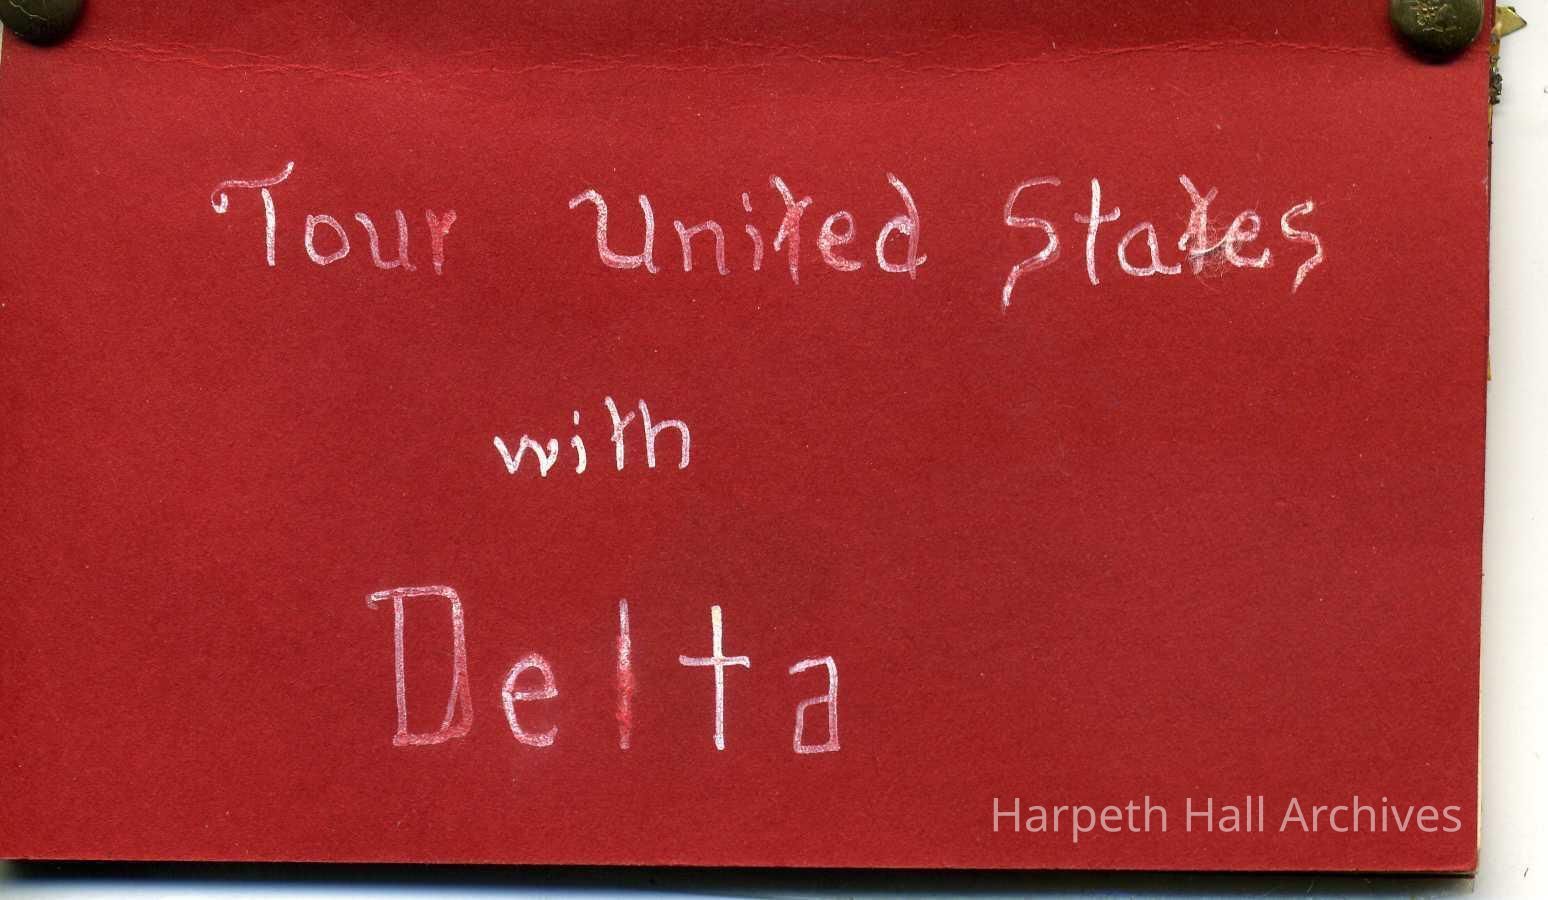 Tour United States
with
Delta
Harpeth Hall Archives